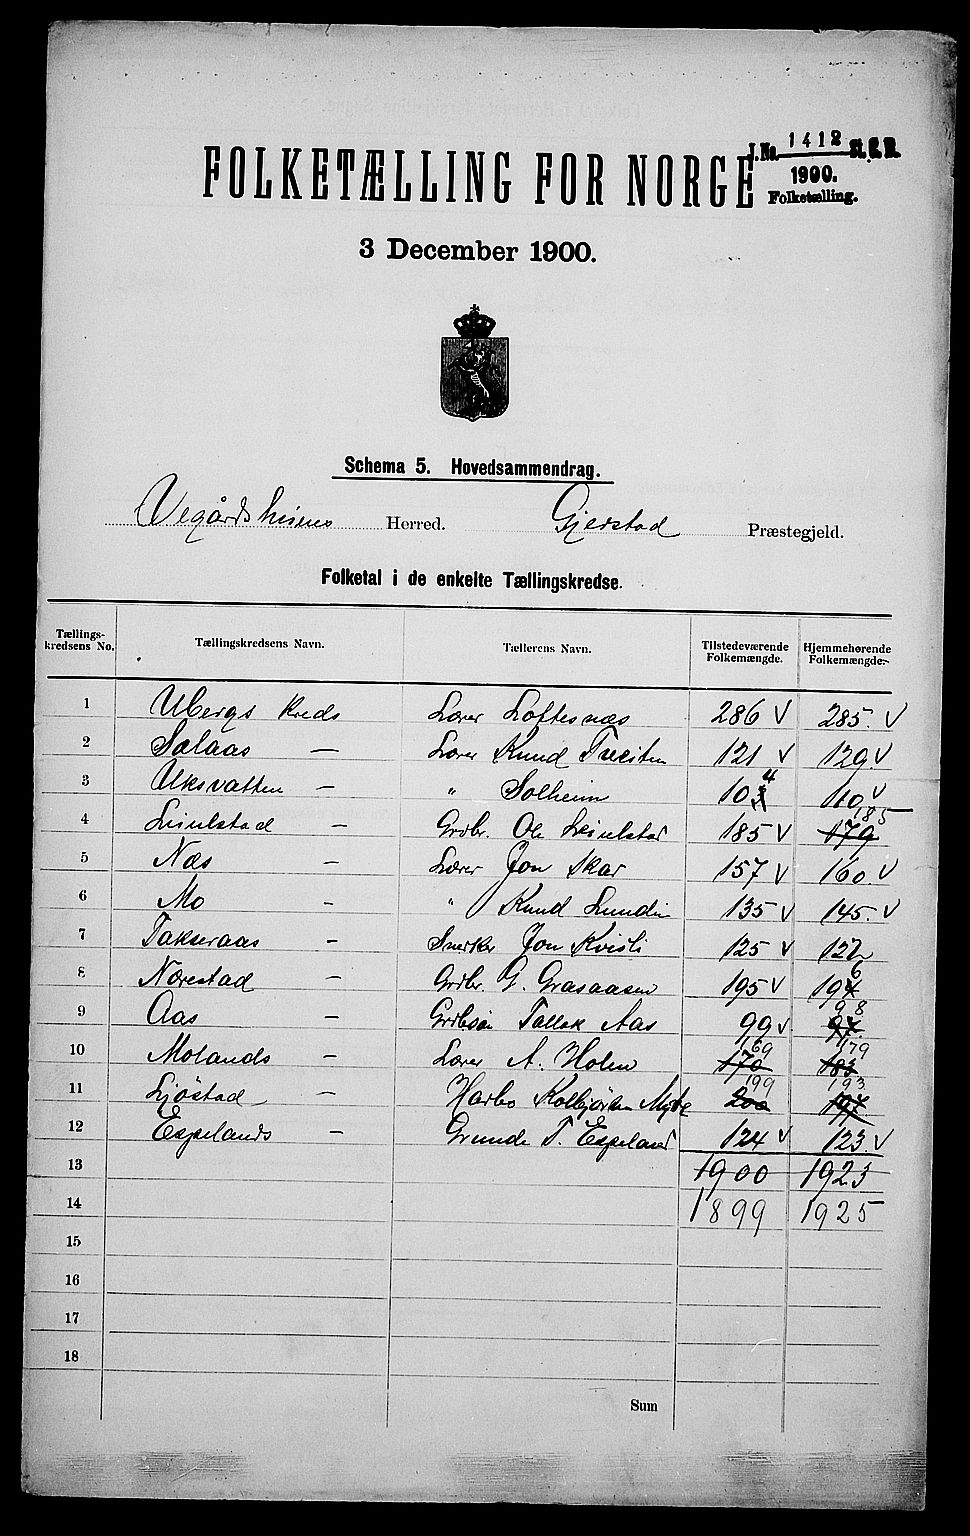 J.No. 1412 St. C. B.
FOLKETÆLLING FOR NORGE
1900.
Folketælling.
3 December 1900.
Schema 5. Hovedsammendrag.
Vegårdsheiens Herred. Gjerstad Præstegjeld.
Folketal i de enkelte Tællingskredse.
Tællings-kredsens No. Tællingskredsens Navn. Tællerens Navn. Tilstedeværende Folkemængde. Hjemmehørende Folkemængde.
1 Ubergs Kreds Lærer Loftesnæs 286 V 285. V
2 Sælaas — Lærer Knud Treiten 121 V 129. V
3 Uksvatten — " Solheim 104 110 V
4 Leiulstad — Grdbr. Ole Leiulstad 185 V 179 185
5 Næs — Lærer Jon Skar 157 V 160. V
6 Mo — " Knud Lundin 135 V 145. V
7 Takseraas — Snerker Jon Kvisli 125 V 122
8 Nærestad — Grdbr. G. Grasaasen 195 V 194 6
9 Aas — Grdbsøn Tallak Aas 99 V 97. 98
10 Molands — Lærer A. Holen 170 169 183 179
11 Ljöstad — Harbo Kolbjörnsen Myra 200 199 197 193
12 Espelands — Grunde T. Espeland 124 V 123. V
13 1900 1923
14 1899 1925
15
16
17
18
Sum